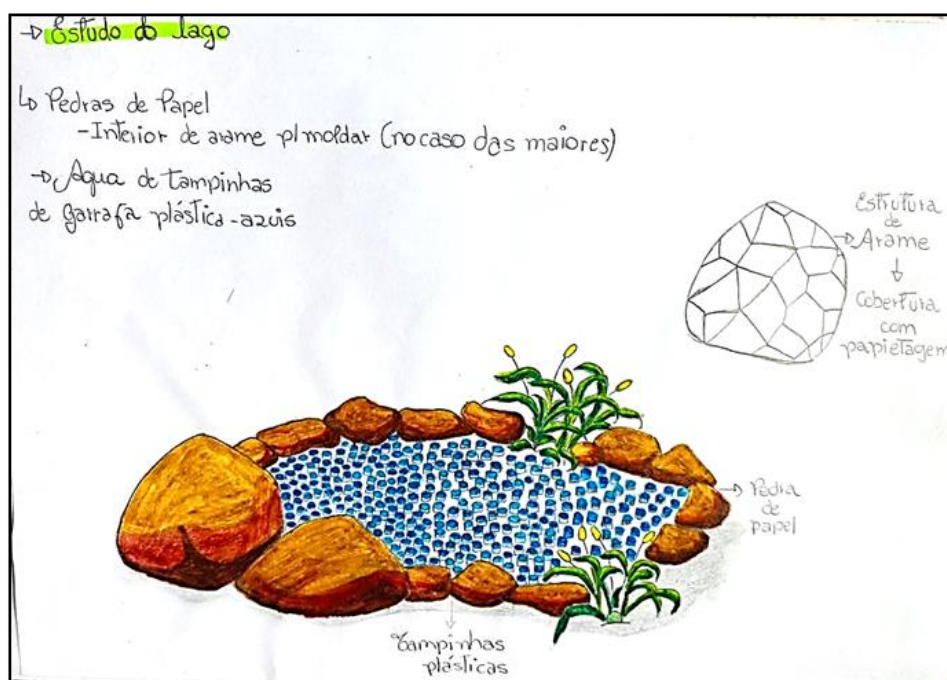 → Estudo do lago
↳ Pedras de Papel
- Interior de arame p/ moldar (no caso das maiores)
→ Água de Tampinhas
de garrafa plástica - azuis
Estrutura
de
→ Arame
↓
Cobertura
com
papietagem
→ Pedra
de
papel
Tampinhas
plásticas